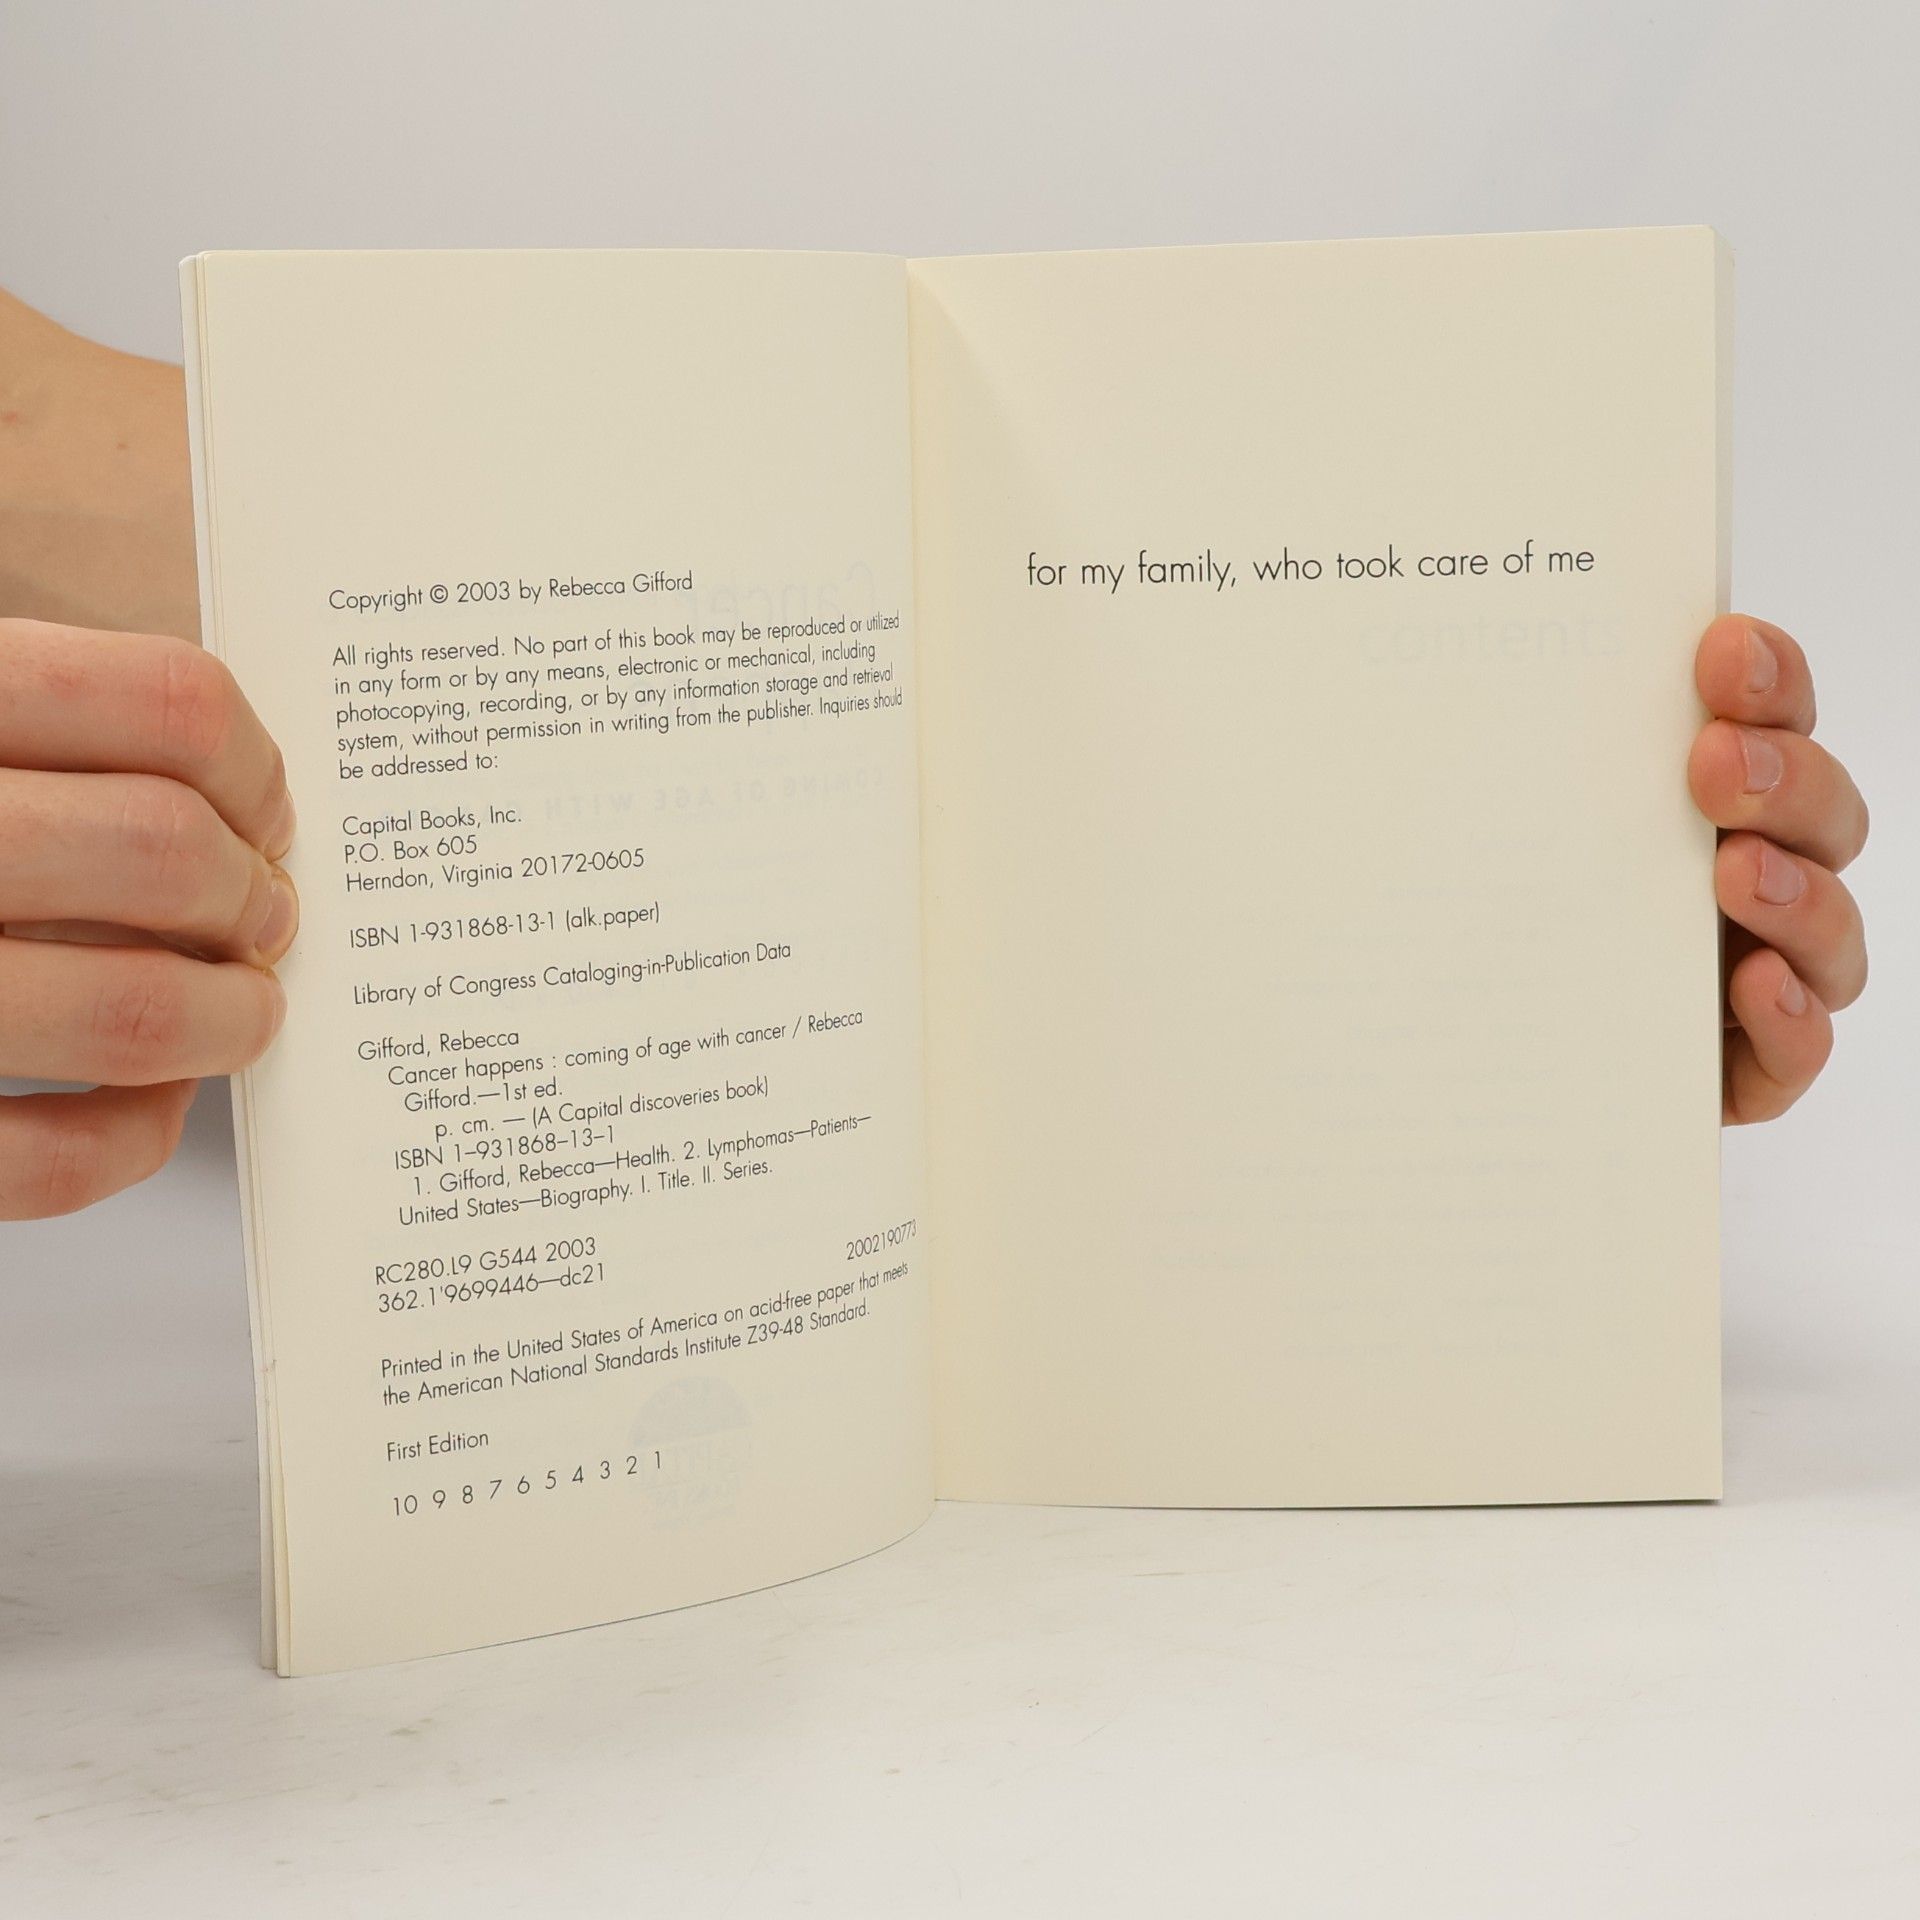 Copyright © 2003 by Rebecca Gifford
All rights reserved. No part of this book may be reproduced or utilized
in any form or by any means, electronic or mechanical, including
photocopying, recording, or by any information storage and retrieval
system, without permission in writing from the publisher. Inquiries should
be addressed to:
Capital Books, Inc.
P.O. Box 605
Herndon, Virginia 20172-0605
ISBN 1-931868-13-1 (alk.paper)
Library of Congress Cataloging-in-Publication Data
Gifford, Rebecca
Cancer happens : coming of age with cancer / Rebecca
Gifford.—1st ed.
p. cm. — (A Capital discoveries book)
ISBN 1–931868–13–1
1. Gifford, Rebecca—Health. 2. Lymphomas—Patients—
United States—Biography. I. Title. II. Series.
RC280.L9 G544 2003
362.1'9699446—dc21 2002190773
Printed in the United States of America on acid-free paper that meets
the American National Standards Institute Z39-48 Standard.
First Edition
10 9 8 7 6 5 4 3 2 1
for my family, who took care of me